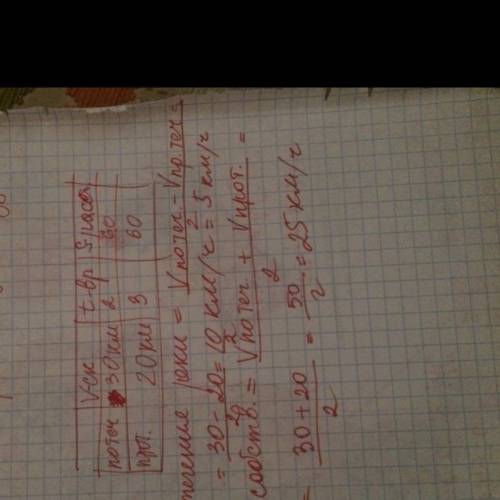 V ск t вр S расст
потеч 30км 2 60
прт. 20км 3 60
течение реки = Vпотеч - Vпротеч / 2 =
= 30 - 20 / 2 = 10 / 2 км/ч = 5 км/ч
собств. = Vпотеч + Vпрот. / 2 =
= 30 + 20 / 2 = 50 / 2 = 25 км/ч